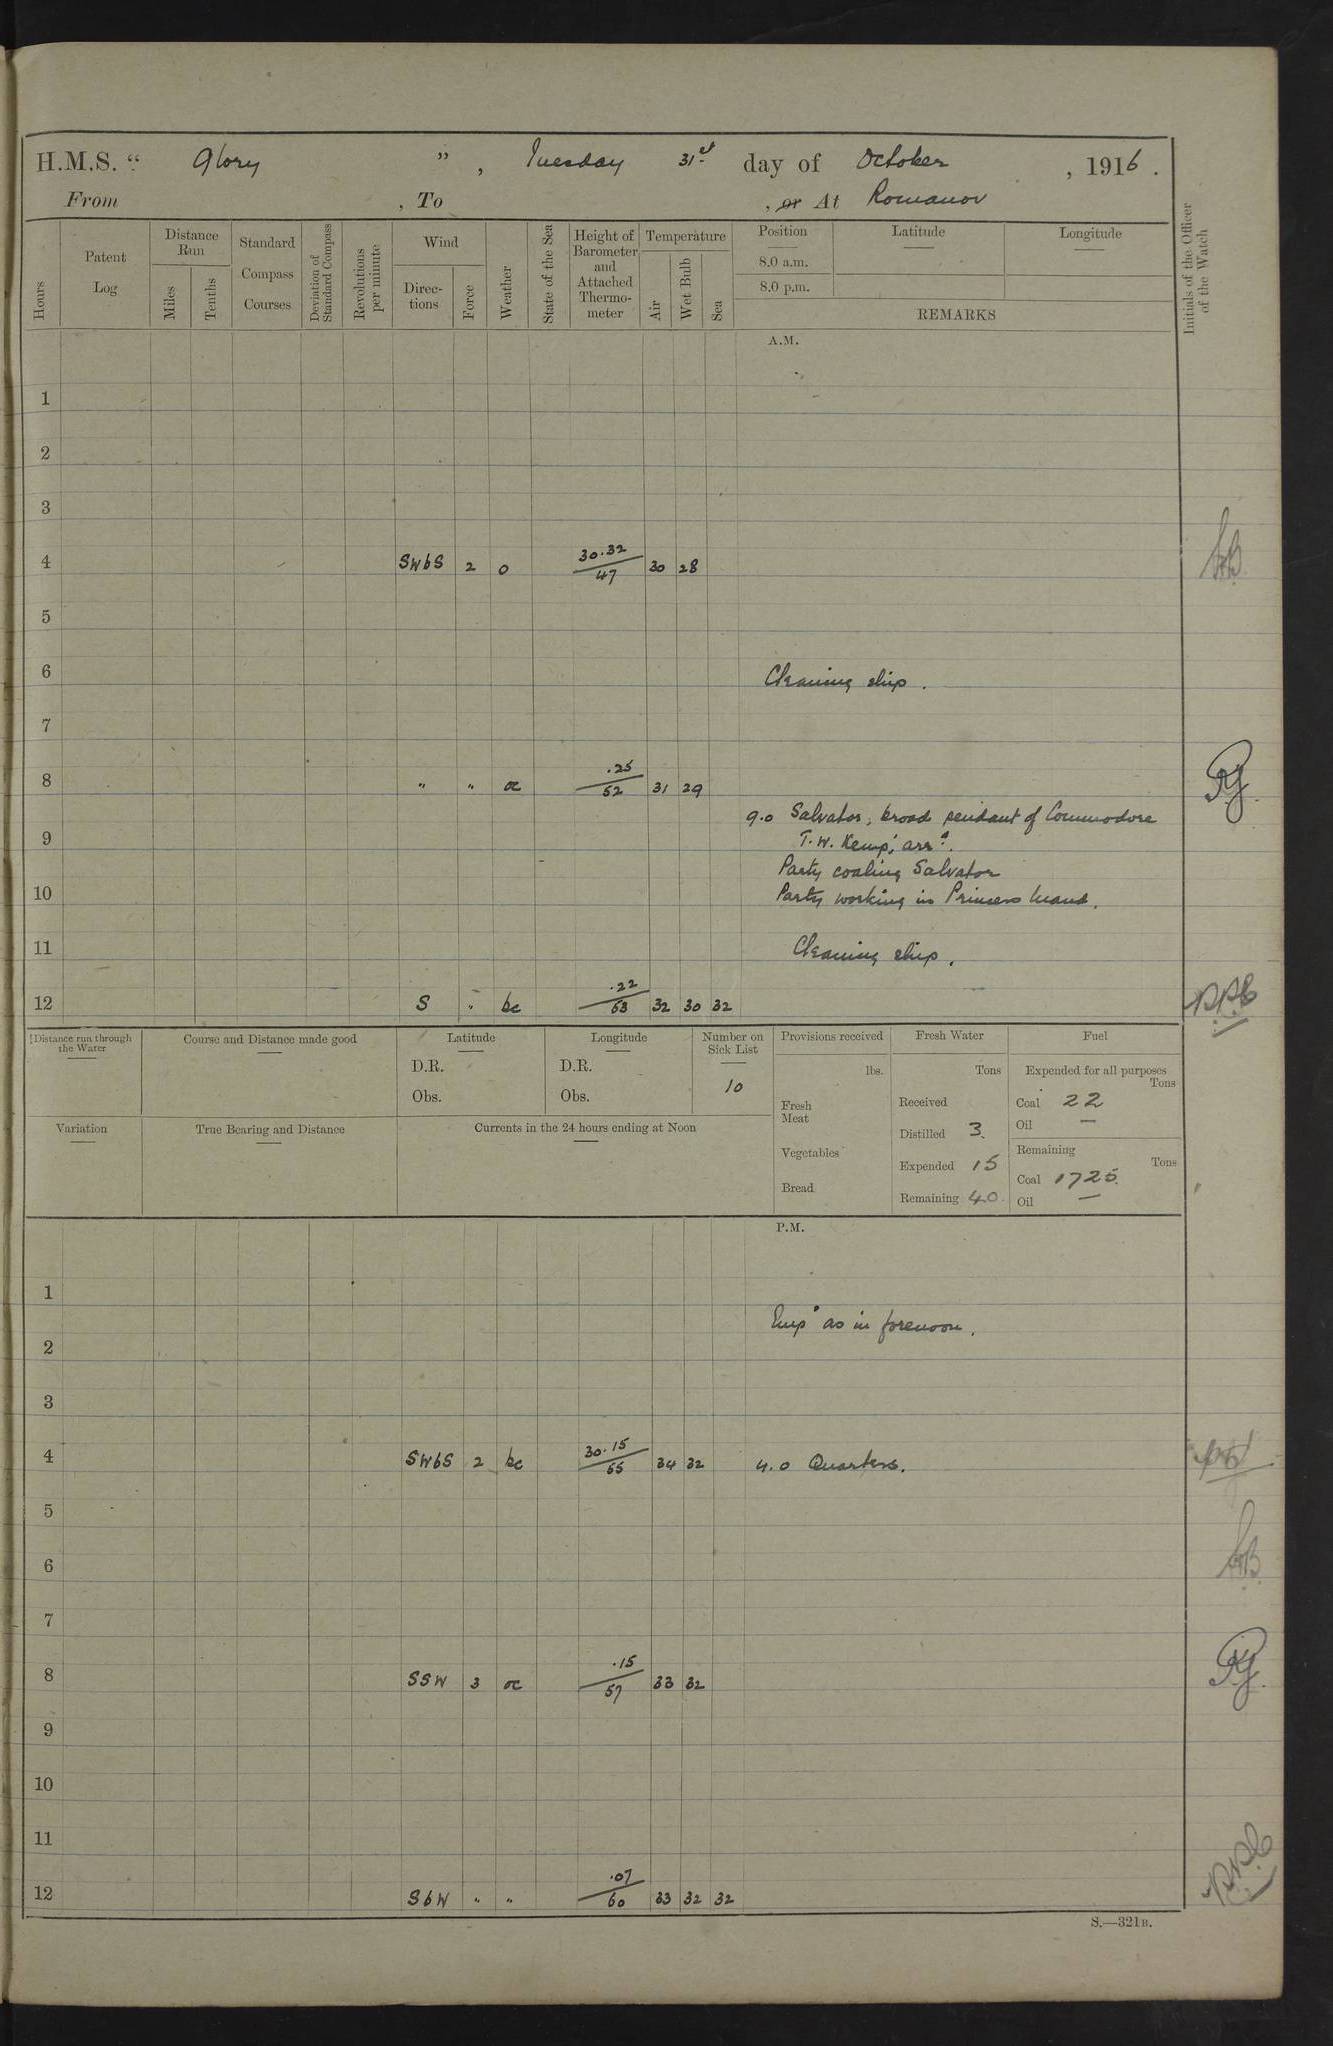 H.M.S. “ Glory ” , Tuesday 31st day of October , 1916 .
From , To , or At Romanov
Hours
Patent Log
Distance Run
Miles
Tenths
Standard Compass Courses
Deviation of Standard Compass
Revolutions per minute
Wind
Directions
Force
Weather
State of the Sea
Height of Barometer and Attached Thermometer
Temperature
Air
Wet Bulb
Sea
Position
8.0 a.m.
8.0 p.m.
Latitude
Longitude
REMARKS
Initials of the Officer of the Watch
A.M.
1
2
3
4 SWbS 2 o 30.32/47 30 28
5
6 Cleaning ship .
7
8 " " oc .25/52 31 29
9.0 Salvator, broad pendant of Commodore
9 T.W. Kemp, arrd.
Party coaling Salvator
10 Party working in Princess Maud.
11 Cleaning ship.
12 S " bc .22/53 32 30 32
Distance run through the Water
Course and Distance made good
Latitude
D.R.
Obs.
Longitude
D.R.
Obs.
Number on Sick List
10
Provisions received
lbs.
Fresh Meat
Vegetables
Bread
Fresh Water
Tons
Received
Distilled 3
Expended 15
Remaining 40
Fuel
Expended for all purposes
Tons
Coal 22
Oil —
Remaining
Tons
Coal 1725
Oil —
Variation
True Bearing and Distance
Currents in the 24 hours ending at Noon
P.M.
1
Empd as in forenoon.
2
3
4 SWbS 2 bc 30.15/55 34 32 4.0 Quarters.
5
6
7
8 SSW 3 oc .15/57 33 32
9
10
11
12 SbW " " .07/60 33 32 32
S.—321B.